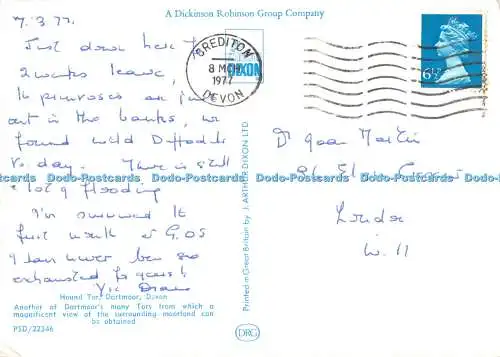 A Dickinson Robinson Group Company
7.3.77.
Just down here
2 weeks leave,
primroses are just
out in the banks, we
found wild Daffodils
to day. There is still
a lot of flooding
I've survived
first week
I have never been so
exhausted
CREDITON
8 MCH
1977
DEVON
DIXON
6½
Dr Joan Martin
London
W. 11
Printed in Great Britain by J. ARTHUR DIXON LTD.
Dodo-Postcards Dodo-Postcards Dodo-Postcards Dodo-Postcards Dodo-Postcards
Hound Tor, Dartmoor, Devon
Another of Dartmoor's many Tors from which a
magnificent view of the surrounding moorland can
be obtained
PSD/22346
DRG